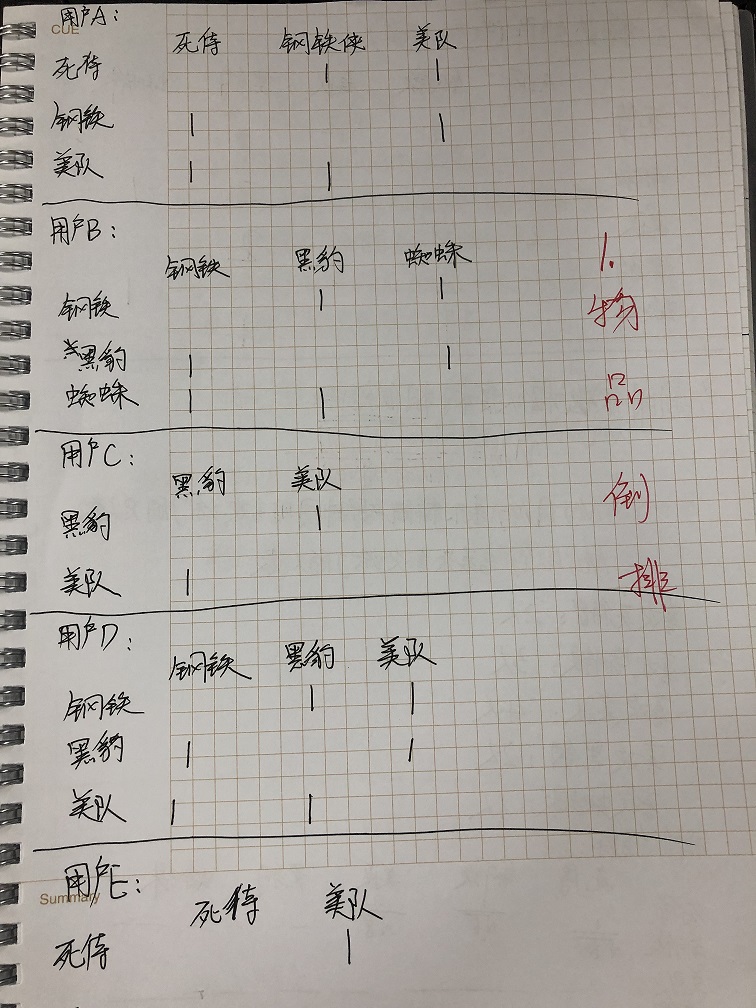 用户A:
CUE
死侍 钢铁侠 美队
死侍 | |
钢铁 | |
美队 | |
用户B:
钢铁 黑豹 蜘蛛
钢铁 | |
黑豹 | |
蜘蛛 | |
用户C:
黑豹 美队
黑豹 |
美队 |
用户D:
钢铁 黑豹 美队
钢铁 | |
黑豹 | |
美队 | |
用户E:
Summary
死侍 美队
死侍 |
1.
物
品
倒
排